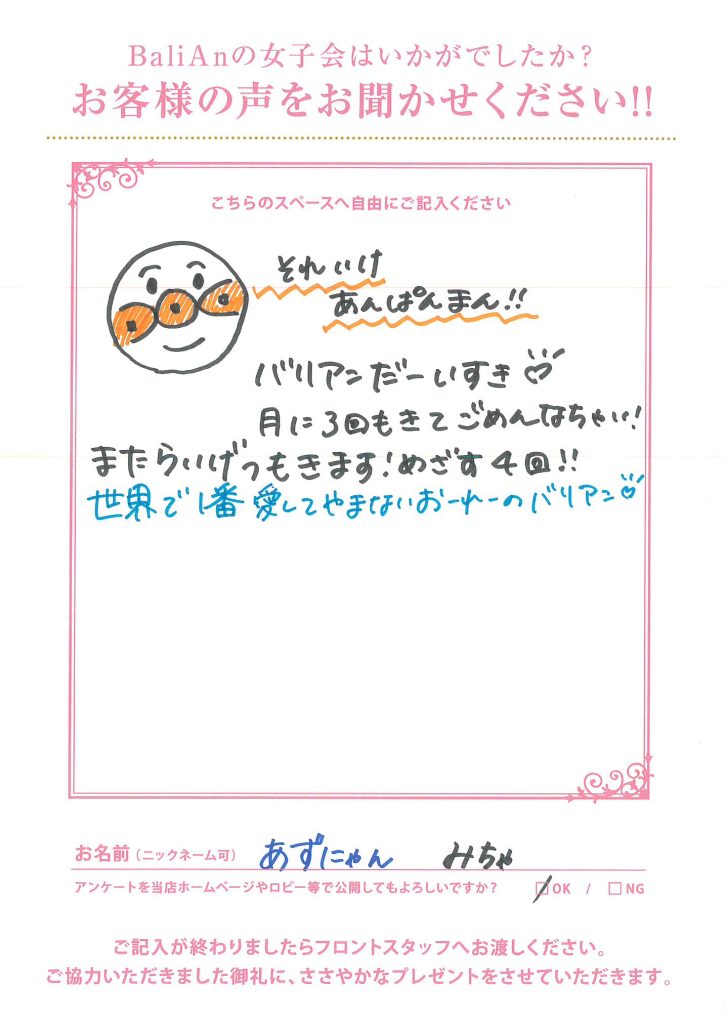 BaliAnの女子会はいかがでしたか?
お客様の声をお聞かせください!!
こちらのスペースへ自由にご記入ください
それいけ
あんぱんまん!!
バリアンだーいすき♡
月に3回もきてごめんなちゃい!
またらいげつもきます!めざす4回!!
世界で1番愛してやまないおーれーのバリアン♡
お名前(ニックネーム可) あずにゃん みちゃ
アンケートを当店ホームページやロビー等で公開してもよろしいですか? ☑OK / □NG
ご記入が終わりましたらフロントスタッフへお渡しください。
ご協力いただきました御礼に、ささやかなプレゼントをさせていただきます。